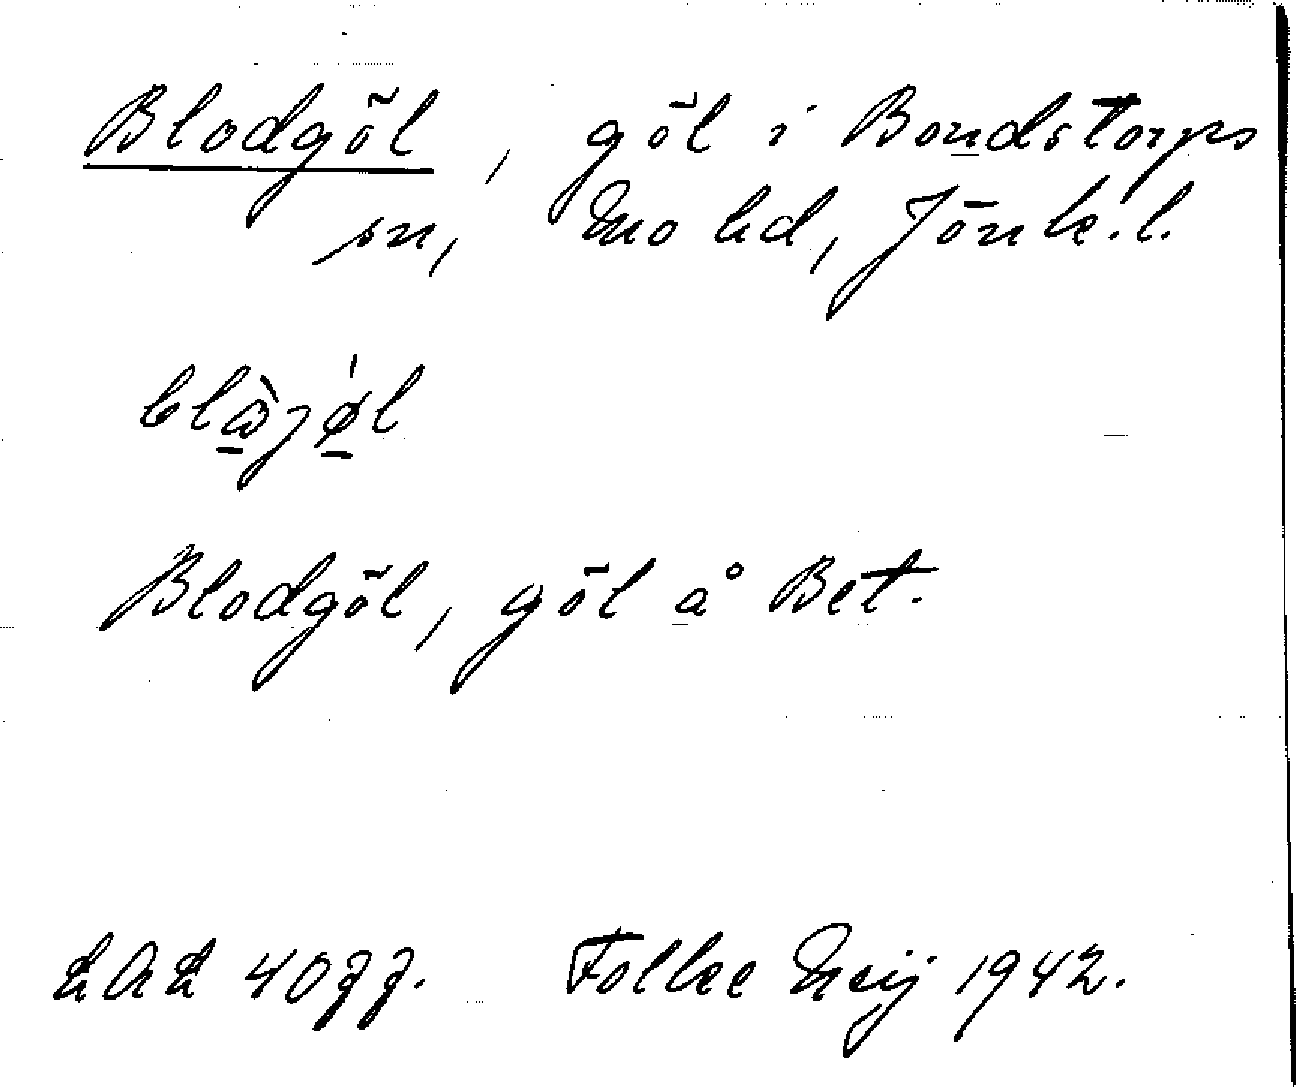 Blodgöl, göl i Bondstorps
sn, Mo hd, Jönk. l.
blòjǿl
Blodgöl, göl å Bet.
LAL 4077. Folke Meij 1942.